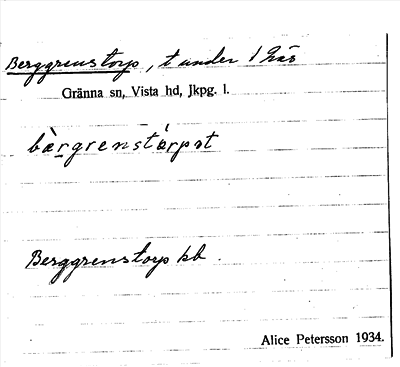 Berggrenstorp, t under 1 Näs
Gränna sn, Vista hd, Jkpg. l.
bàrgrenstárpət
Berggrenstorp kb.
Alice Petersson 1934.